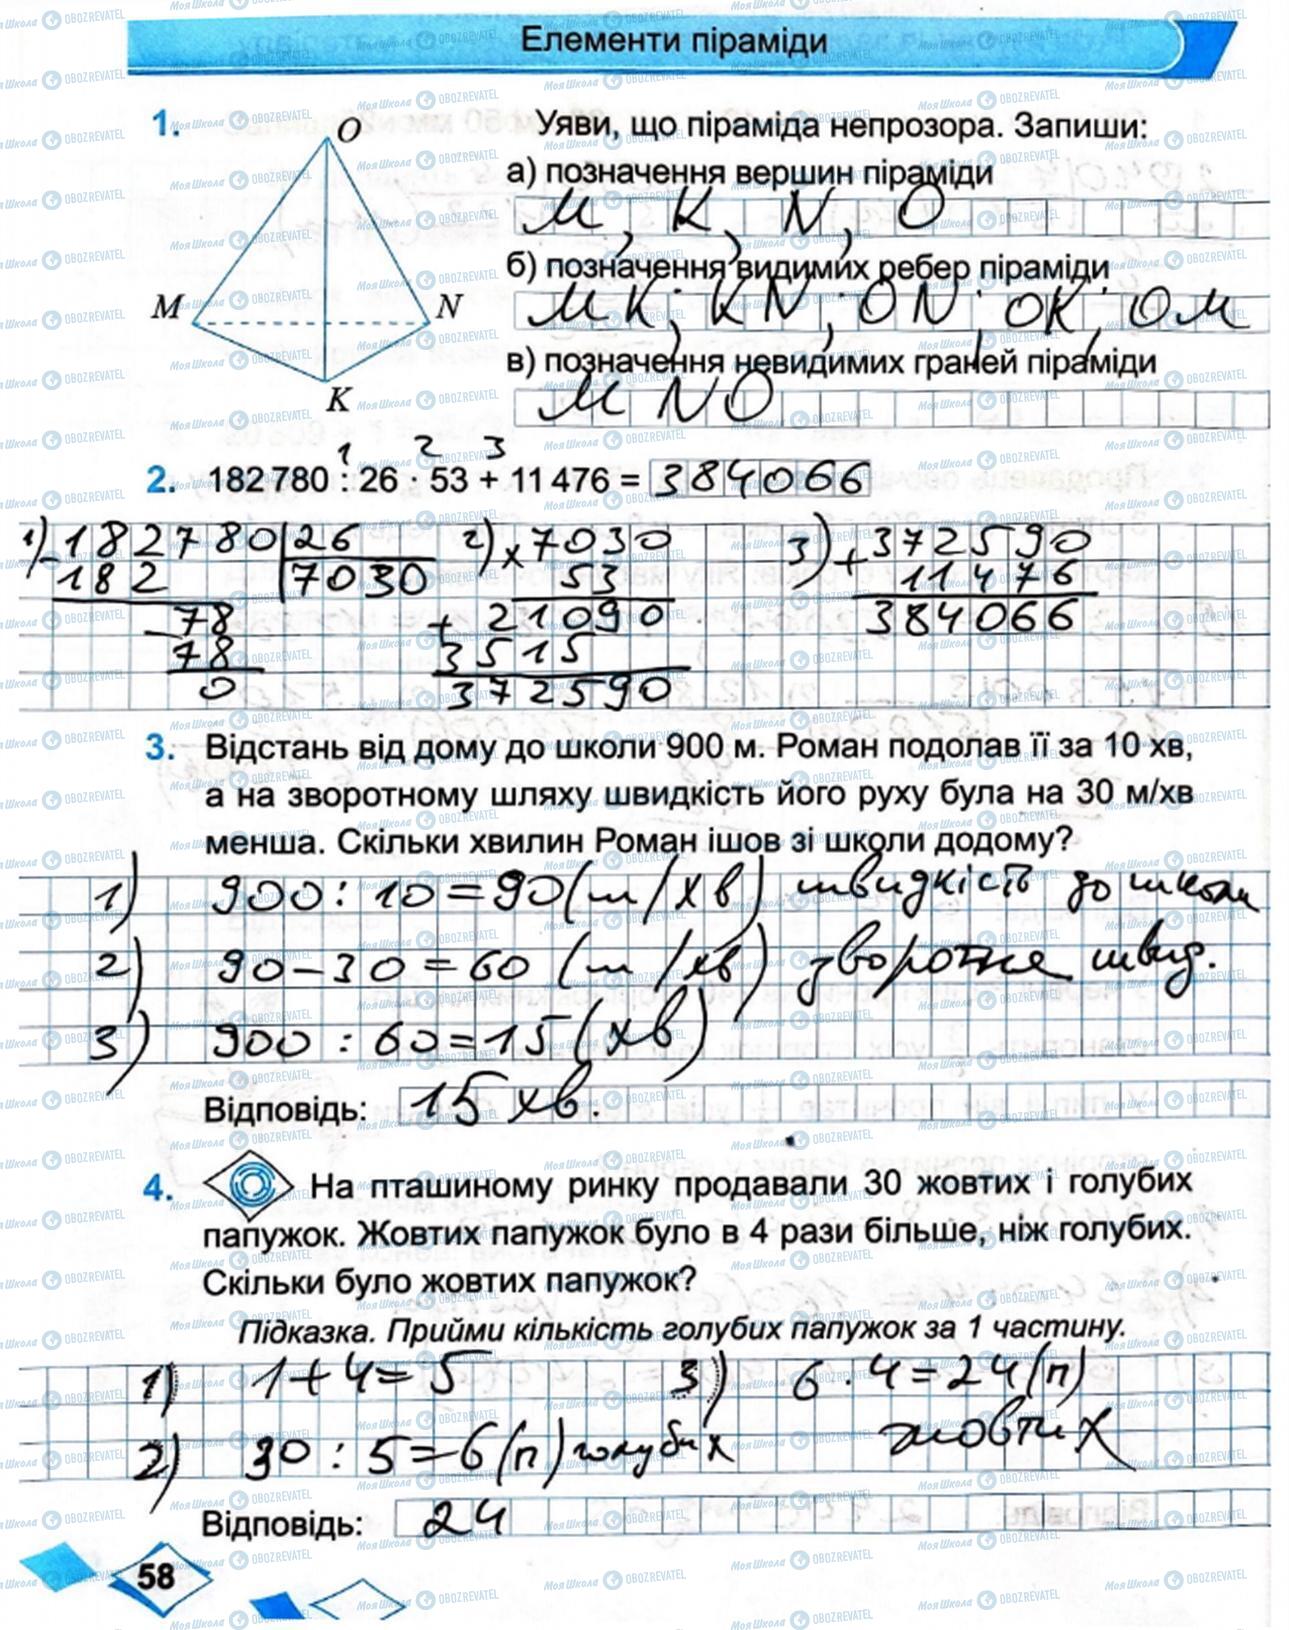 Елементи піраміди
1.
O
M
N
K
Уяви, що піраміда непрозора. Запиши:
а) позначення вершин піраміди
M, K, N, O
б) позначення видимих ребер піраміди
MK; KN; ON; OK; OM
в) позначення невидимих граней піраміди
MNO
1 2 3
2. 182 780 : 26 · 53 + 11 476 = 384066
1) 182780 26
182 7030
78
78
0
2) × 7030
53
+ 21090
3515
372590
3) + 372590
11476
384066
3. Відстань від дому до школи 900 м. Роман подолав її за 10 хв,
а на зворотному шляху швидкість його руху була на 30 м/хв
менша. Скільки хвилин Роман ішов зі школи додому?
1) 900 : 10 = 90 (м/хв) швидкість до школи
2) 90 – 30 = 60 (м/хв) зворотня швид.
3) 900 : 60 = 15 (хв)
Відповідь: 15 хв.
4. На пташиному ринку продавали 30 жовтих і голубих
папужок. Жовтих папужок було в 4 рази більше, ніж голубих.
Скільки було жовтих папужок?
Підказка. Прийми кількість голубих папужок за 1 частину.
1) 1 + 4 = 5
2) 30 : 5 = 6 (п) голубих
3) 6 · 4 = 24 (п)
жовтих
Відповідь: 24
58